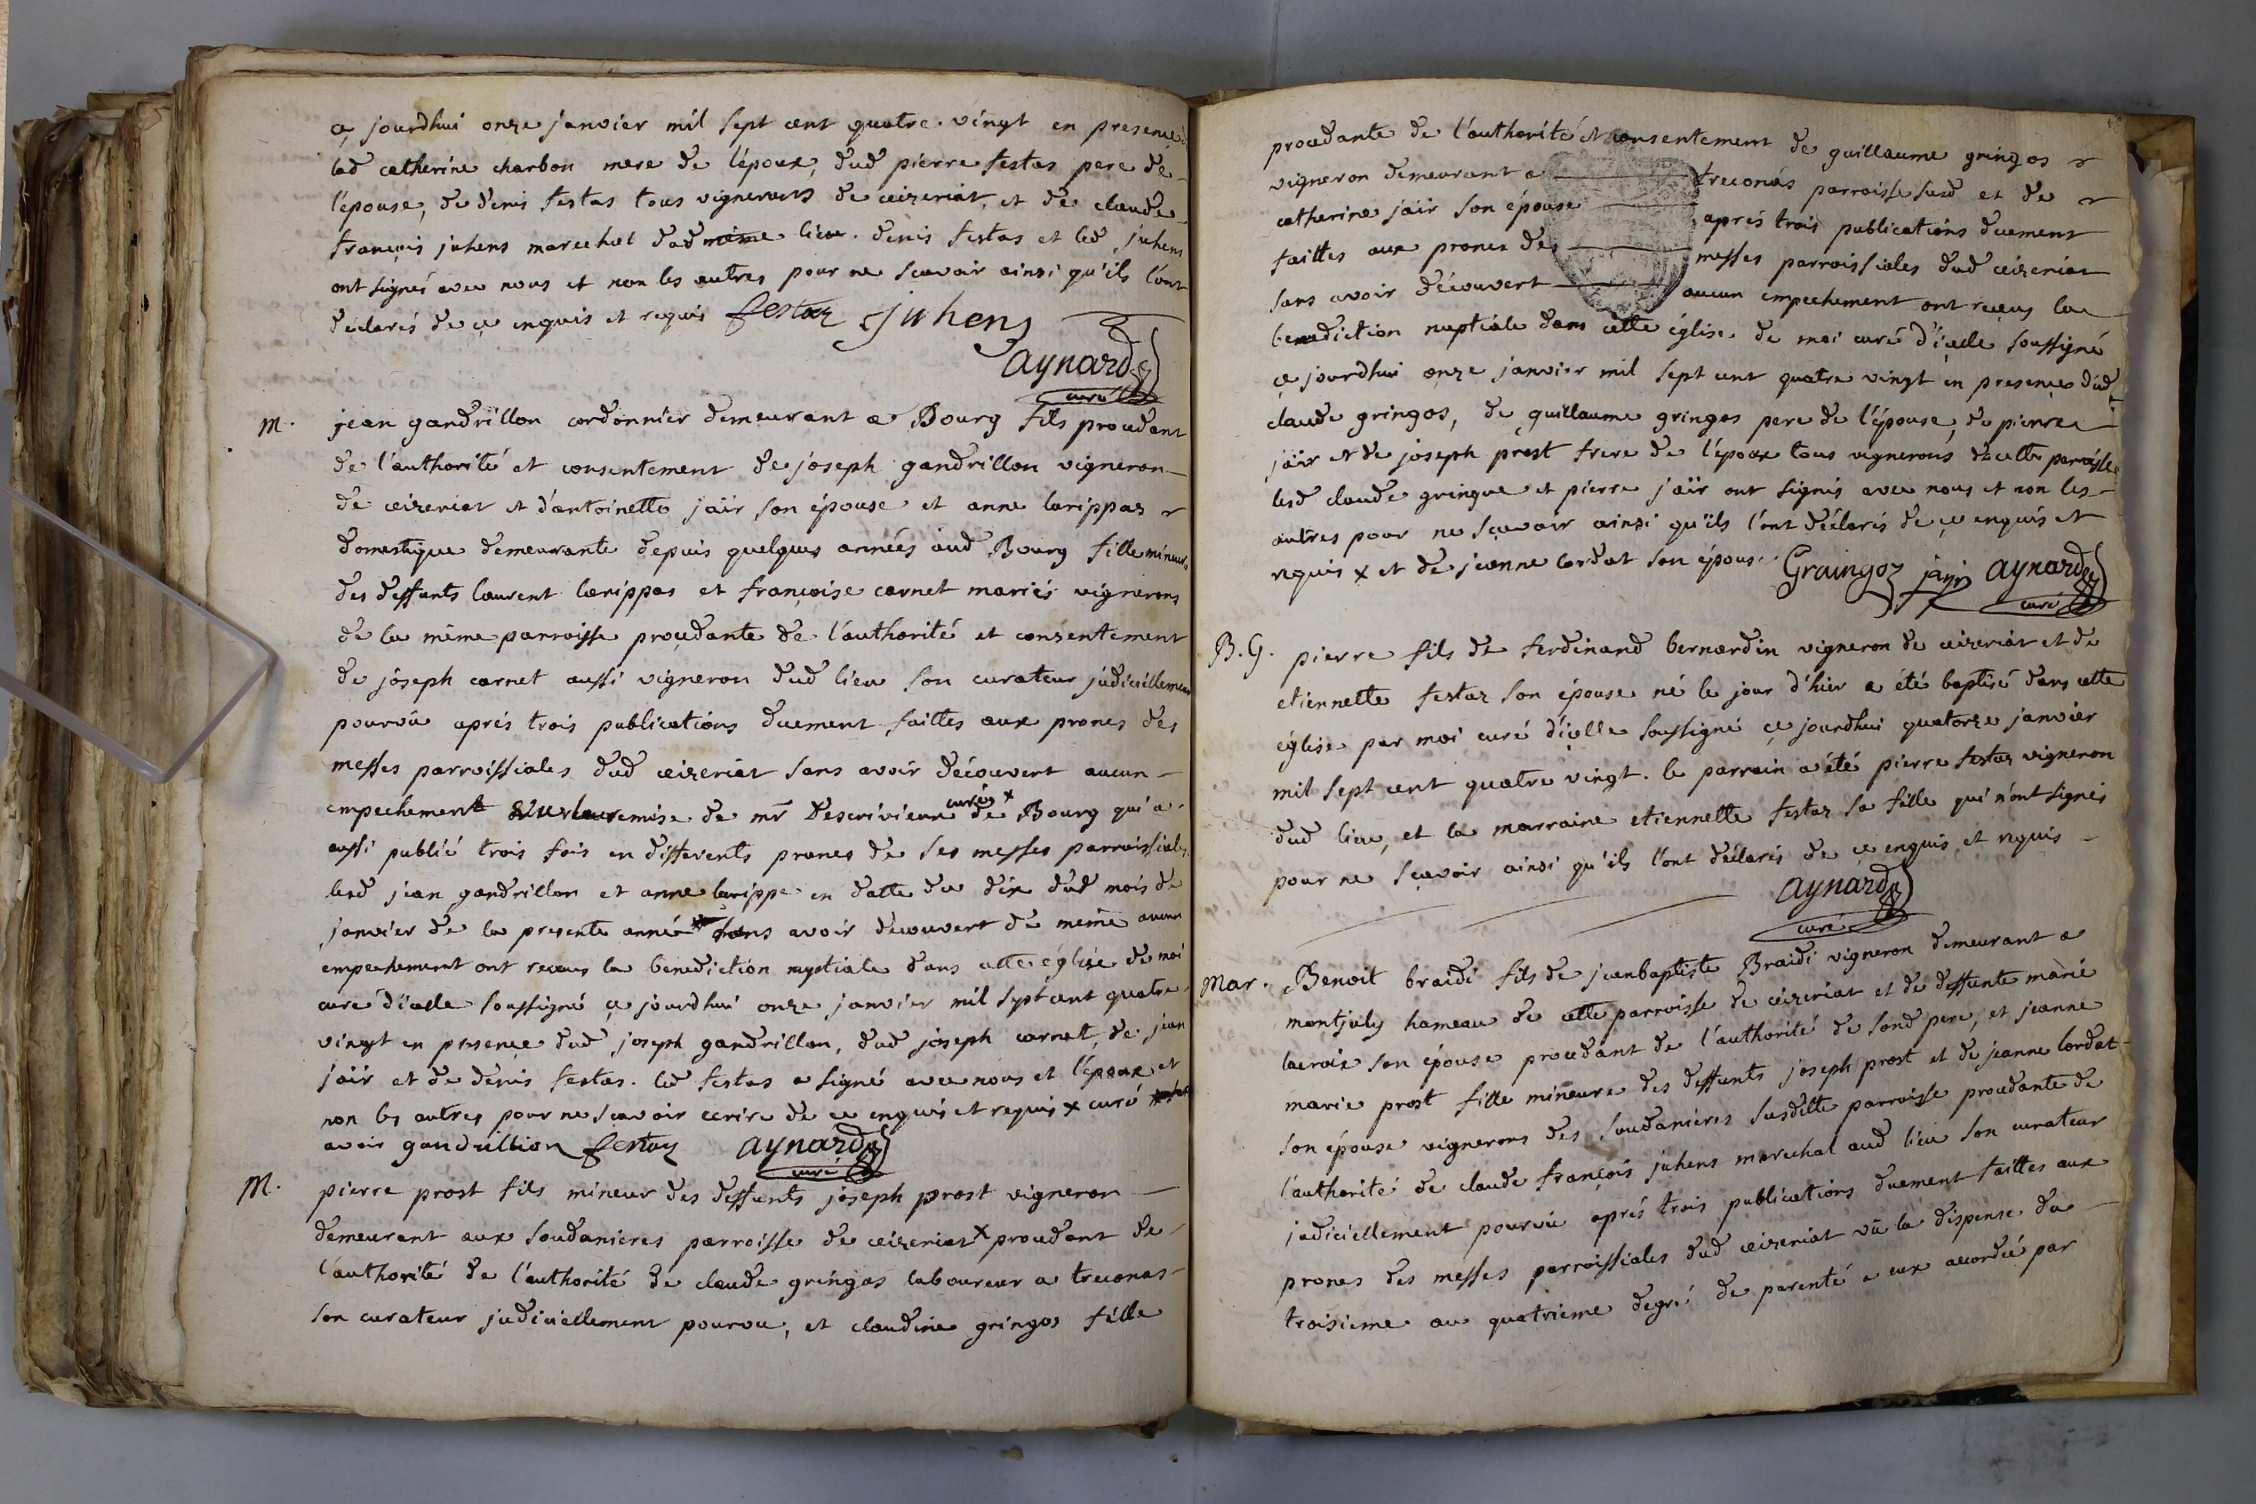 ce jourdhui onze janvier mil sept cent quatre vingt en presence de
lad catherine charbon mere de l'époux, dud pierre festas pere de
l'épouse, de denis festas tous vignerons de ceizeriat, et de claude
françois juhens marechal dud même lieu. denis festas et led juhens
ont signés avec nous et non les autres pour ne scavoir ainsi qu'ils l'ont
declarés de ce enquis et requis festaz Juhens
aynard
curé
M. jean gandrillon cordonnier demeurant a Bourg fils procedant
de l'authorité et consentement de joseph gandrillon vigneron
de ceizeriat et d'antoinette jaïr son épouse et anne larippas
domestique demeurante depuis quelques années aud Bourg fille mineure
des deffunts laurent larippas et françoise carnet mariés vignerons
de la même parroisse procedante de l'authorité et consentement
de joseph carnet aussi vigneron dud lieu son curateur judiciellement
pourvû aprés trois publications duement faittes aux prones des
messes parroissiales dud ceizeriat sans avoir découvert aucun
empechement remise de mr Descrivieux curés x de Bourg qui a
aussi publié trois fois en differents prones de ses messes parroissiales
lesd jean gandrillon et anne larippe en datte du dix dud mois de
janvier de la presente année sans avoir decouvert de même aucun
empechement ont receus la benediction nuptiale dans cette église de moi
curé d'icelle soussigné ce jourdhui onze janvier mil sept cent quatre
vingt en presence dud joseph gandrillon, dud joseph carnet, de jean
jaïr et de denis festas. led festas a signé avec nous et l'époux et
non les autres pour ne scavoir ecrire de ce enquis et requis x curé
avoir gandrillion festaz aynard
curé
M. pierre prost fils mineur des deffunts joseph prost vigneron
demeurant aux soudanieres parroisse de ceizeriat x procedant de
l'authorité de l'authorité de claude gringos laboureur a treconas
son curateur judiciellement pourvu, et claudine gringos fille
procedante de l'authorité et consentement de guillaume gringos
vigneron demeurant a treconas parroisse susd et de
catherine jaïr son épouse aprés trois publications duement
faittes aux prones des messes parroissiales dud ceizeriat
sans avoir découvert aucun empechement ont receus la
benediction nuptiale dans cette église de moi curé d'icelle soussigné
ce jourdhui onze janvier mil sept cent quatre vingt en presence dud
claude gringos, de guillaume gringos pere de l'épouse, de pierre
jaïr et de joseph prost frere de l'époux tous vignerons de cette parroisse
lesd claude gringue et pierre jaïr ont signés avec nous et non les
autres pour ne sçavoir ainsi qu'ils l'ont déclarés de ce enquis et
requis x et de jeanne cordat son épouse. Graingoz jayr aynard
curé
B.G. pierre fils de ferdinand bernardin vigneron de ceizeriat et de
etiennette festaz son épouse né le jour d'hier a été baptisé dans cette
église par moi curé d'icelle soussigné ce jourdhui quatorze janvier
mil sept cent quatre vingt. le parrain a été pierre festaz vigneron
dud lieu, et la marraine etiennette festaz sa fille qui n'ont signés
pour ne sçavoir ainsi qu'ils l'ont déclarés de ce enquis et requis
aynard
curé
Mar. Benoit braidi fils de jeanbaptiste Braidi vigneron demeurant a
montjuly hameau de cette parroisse de ceizeriat et de deffunte marie
lacroix son épouse procedant de l'authorité de sond pere, et jeanne
marie prost fille mineure des deffunts joseph prost et de jeanne cordat
son épouse vignerons des soudanieres susditte parroisse procedante de
l'authorité de claude françois juhens marechal aud lieu son curateur
judiciellement pourvû aprés trois publications duement faittes aux
prones des messes parroissiales dud ceizeriat vû la dispense du
troisieme au quatrieme degré de parenté a eux accordée par